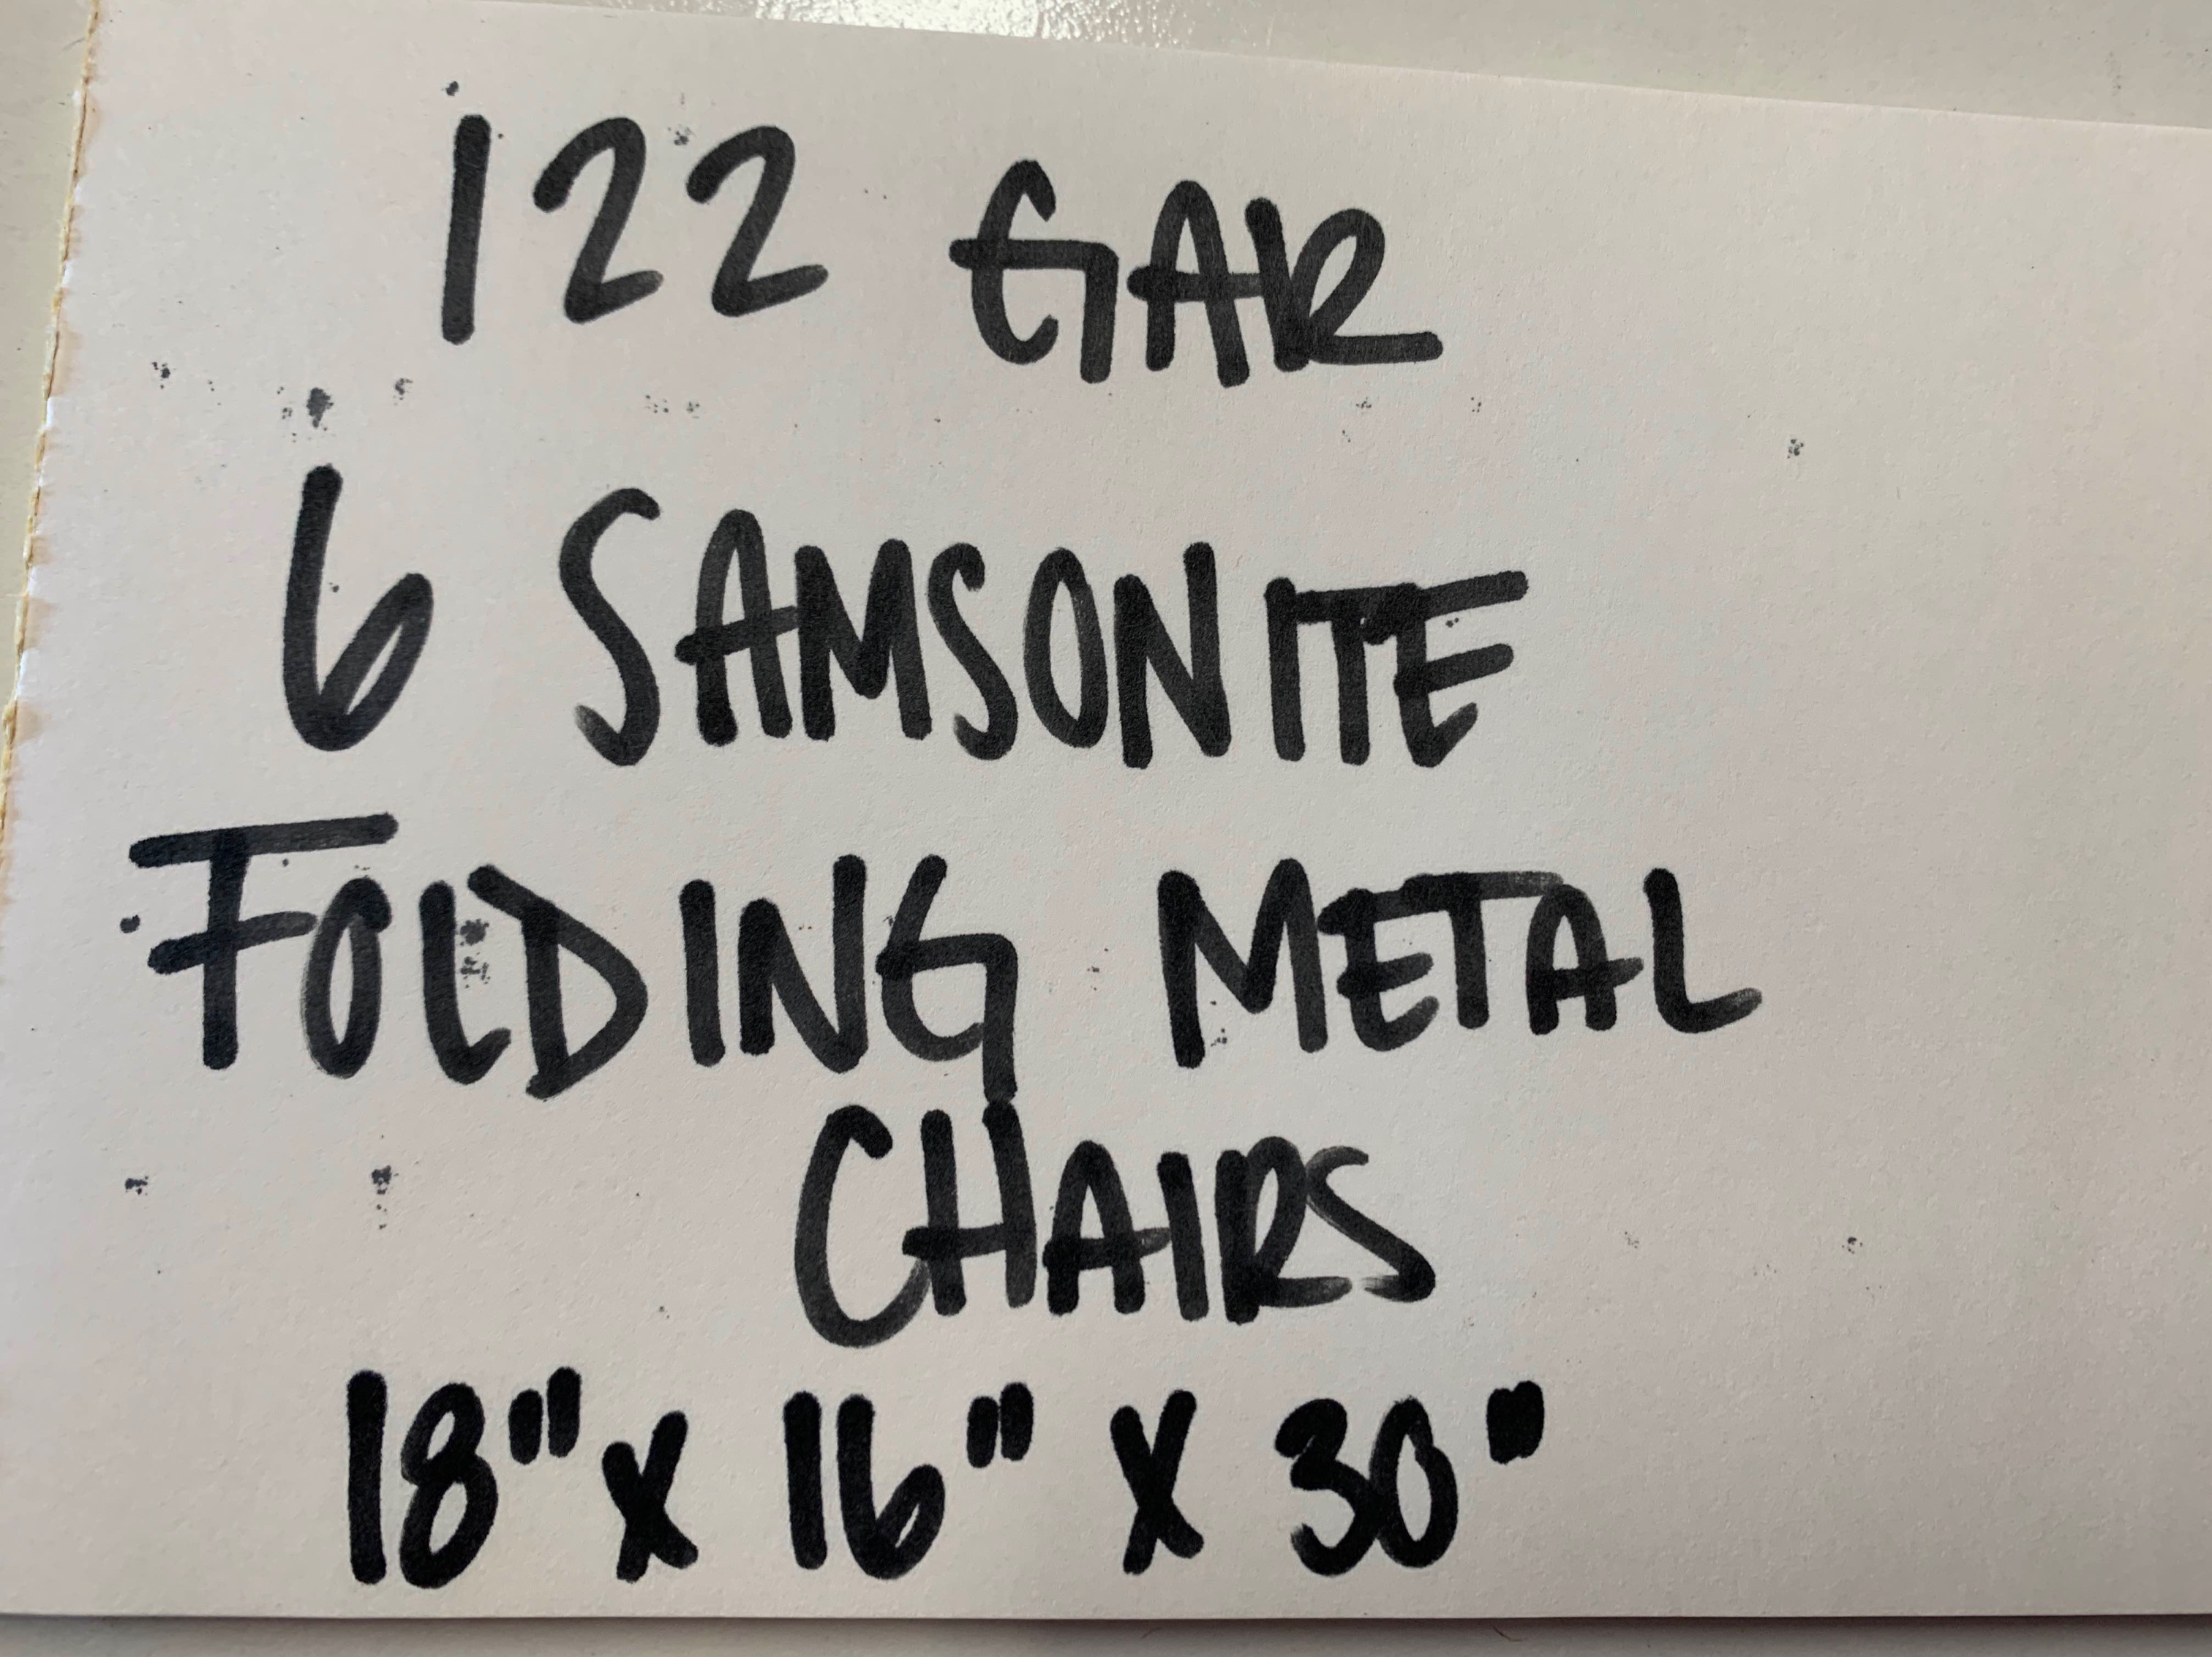 122 GAR
6 SAMSONITE
FOLDING METAL
CHAIRS
18" x 16" x 30"